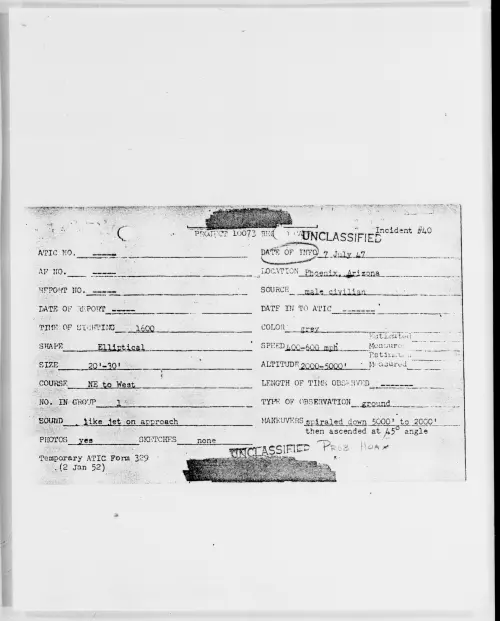 PROJECT 10073
UNCLASSIFIED
Incident #40
ATIC NO. -----
DATE OF INFO 7 July 47
AF NO. -----
LOCATION Phoenix, Arizona
REPORT NO. -----
SOURCE male civilian
DATE OF REPORT -----
DATE IN TO ATIC -------
TIME OF SIGHTING 1600
COLOR grey
SHAPE Elliptical
SPEED 400-600 mph
Estimated
Measured
SIZE 20'-30'
ALTITUDE 2000-5000'
Estimated
Measured
COURSE NE to West
LENGTH OF TIME OBSERVED -------
NO. IN GROUP 1
TYPE OF OBSERVATION ground
SOUND like jet on approach
MANEUVERS spiraled down 5000' to 2000'
then ascended at 45° angle
PHOTOS yes SKETCHES none
UNCLASSIFIED
PROB HOAX
Temporary ATIC Form 329
(2 Jan 52)